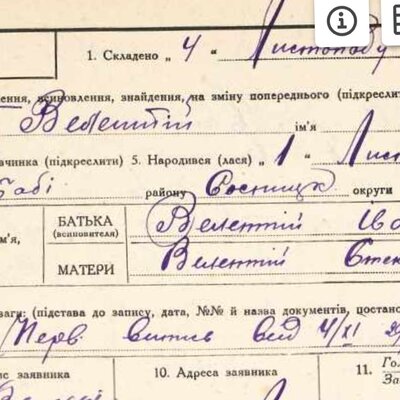 1. Складено „ 4 “ Листопаду
ення, всиновлення, знайдення, на зміну попереднього (підкреслит
Велентій ім'я
вчинка (підкреслити) 5. Народився (лася) „ 1 “ Лист
бабі району Сосницьк округи
БАТЬКА (всиновителя) Велентій Іва
м'я,
МАТЕРИ Велентій Степ
ваги: (підстава до запису, дата, №№ й назва документів, постано
Перв. витнь від 4/XI 29
ис заявника 10. Адреса заявника 11. Го
За